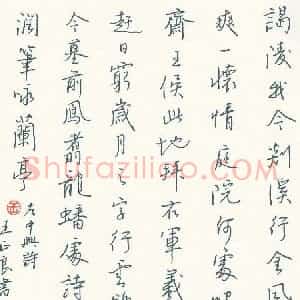 謁陵我今剡溪行金風
爽一懷情庭院何處
齋王侯此地拜右軍義
日窮歲月之字行雲
今墓前鳳翥龍蟠處詩
潤筆詠蘭亭
左中興詩
王正良書
Shufaziliao.com